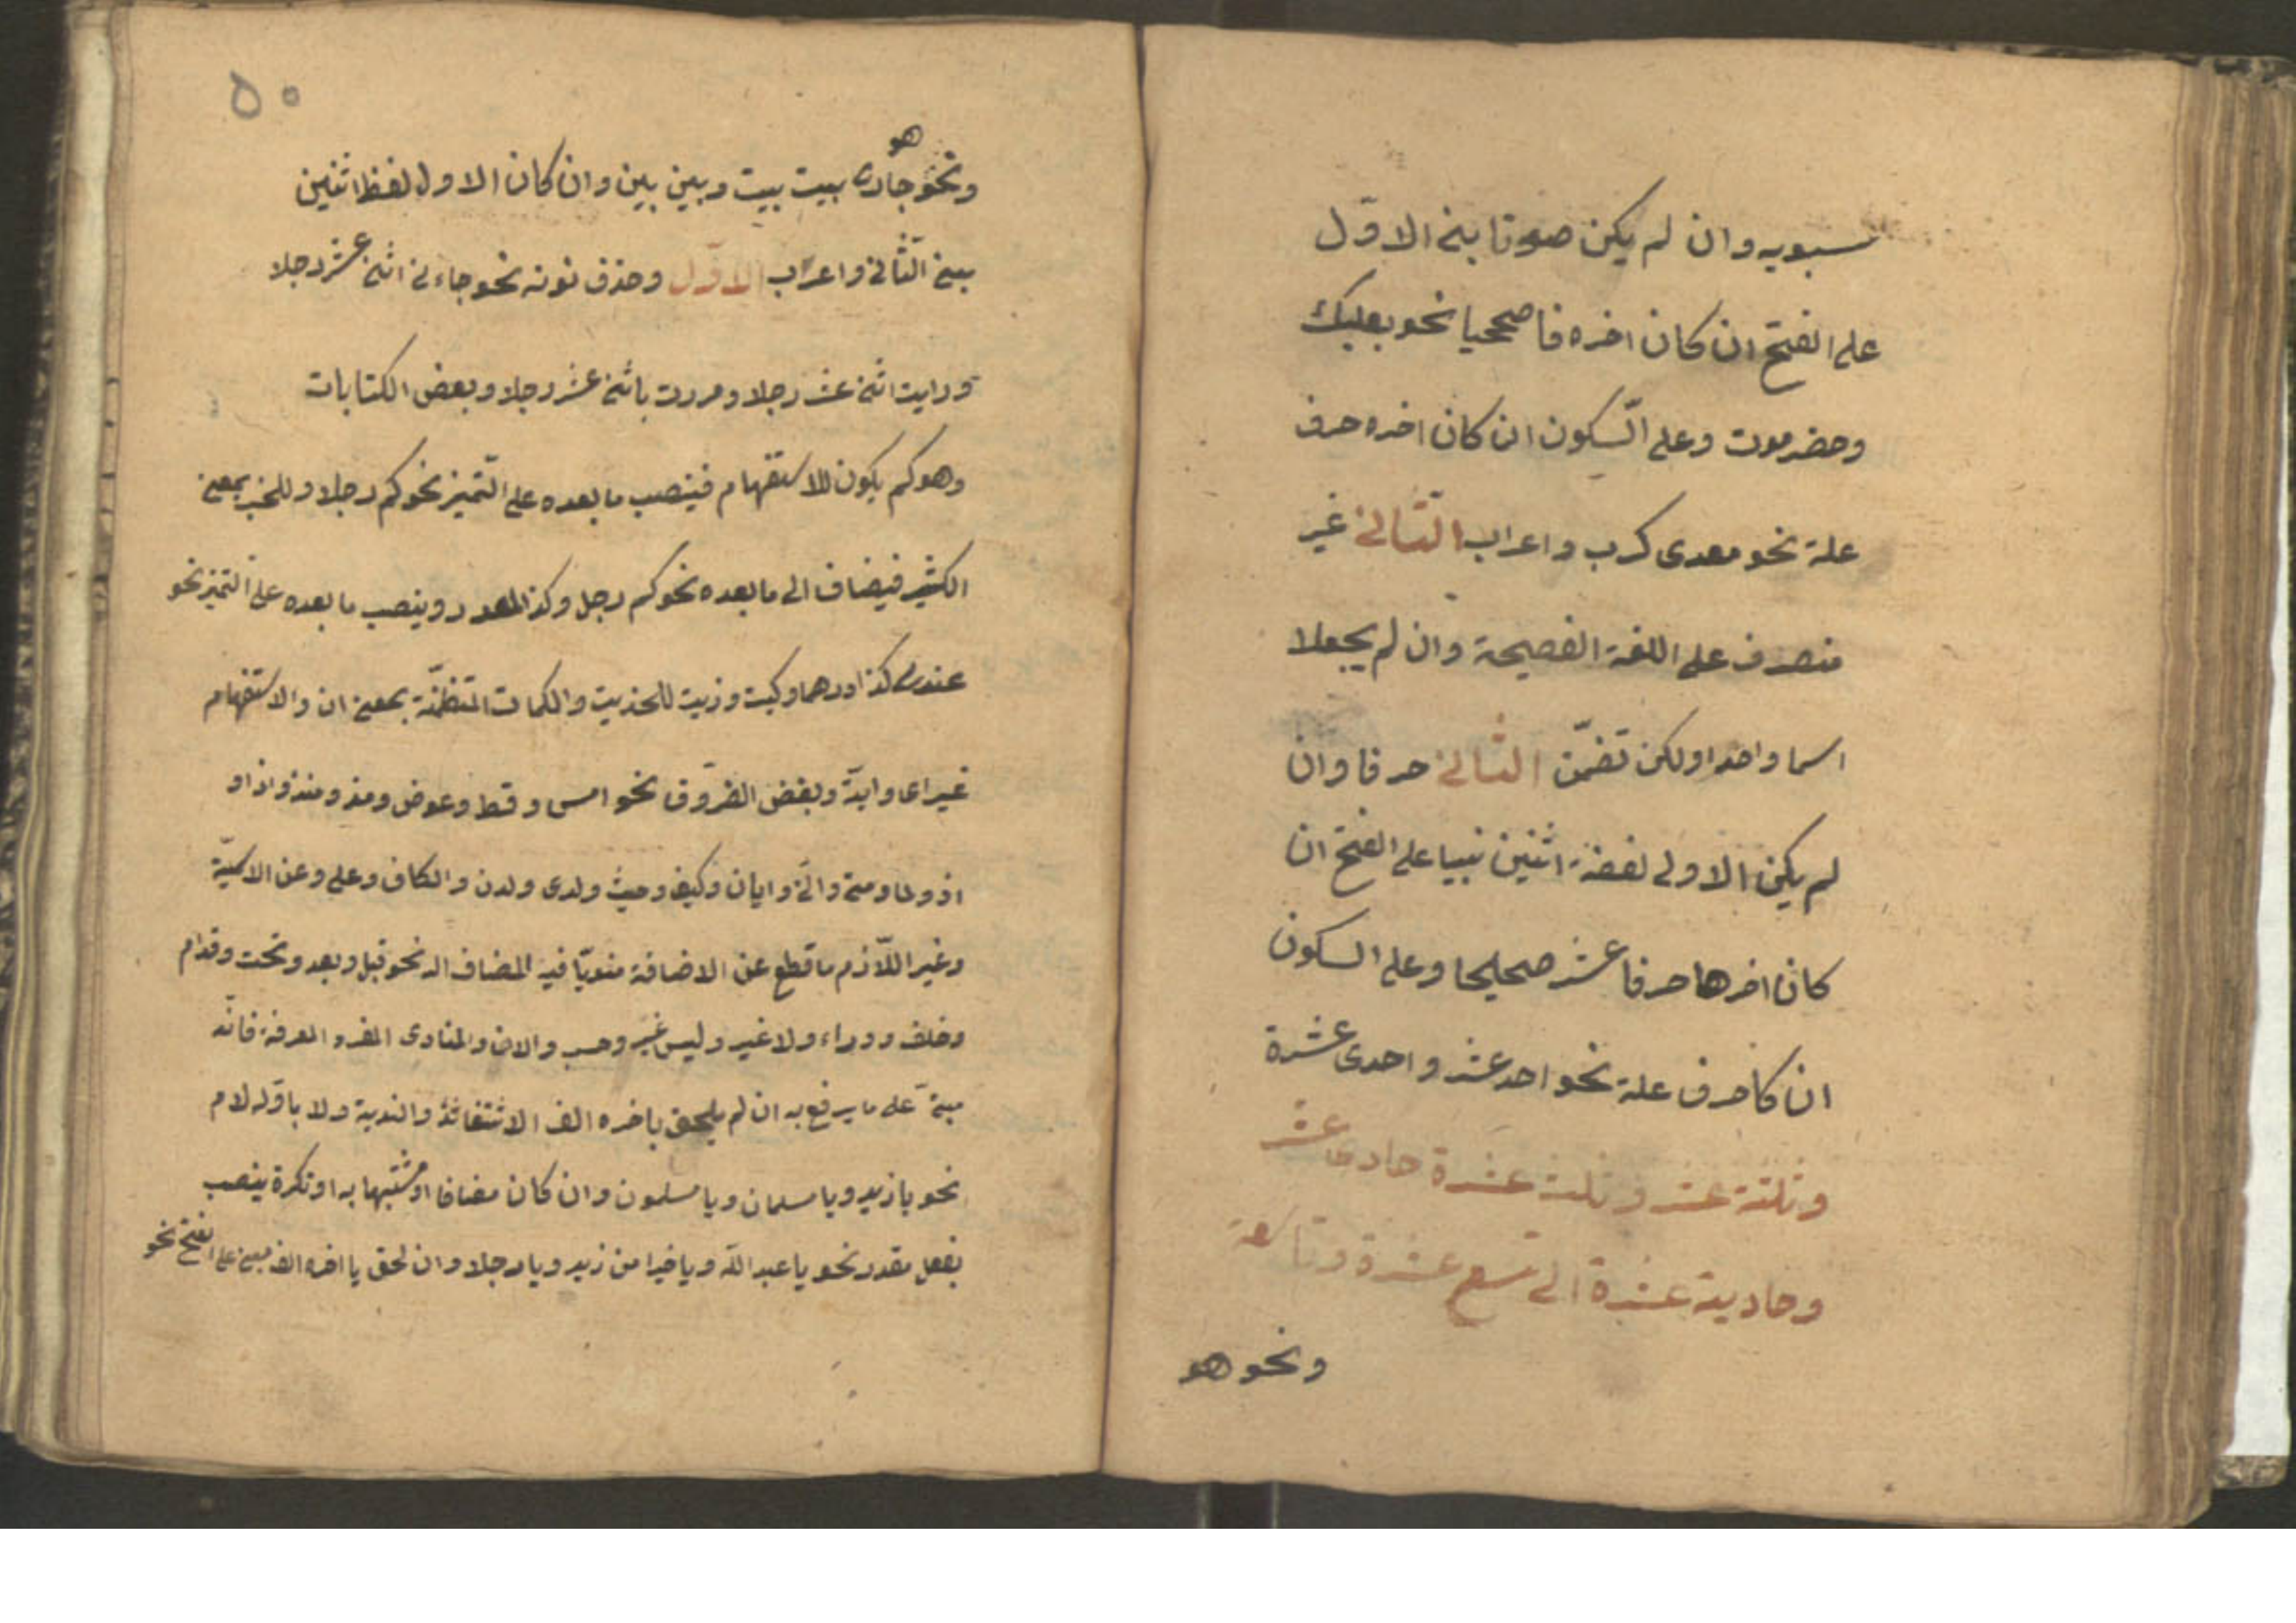 سيبويه وان لم يكن صوتا بني الاوّل
على الفتح ان كان اخره فا صحيحا نحو بعلبك
وحضرموت وعلى السّكون ان كان اخره حرف
علة نحو معدى كرب واعراب الثّانى غير
منصرف على اللغة الفصيحة وان لم يجعلا
اسما واحدا ولكن تضمّن الثّانى حرفا وان
لم يكن الاولى لفضة اثنين نبيا على الفتح ان
كان اخرها حرفا عشر صحيحا وعلى السكون
ان كا حرف علة نحو احد عشر واحدى عشرة
وثلثة عشر وثلث عشرة حادى عشر
وحادية عشرة الى تسع عشرة وتاسعة
ونحو هو
٥٠
هو
ونحو جارى بيت بيت وبين بين وان كان الاول لفظ اثنين
بين الثّانى واعراب الاوّل وحذف نونه نحو جاءنى اثنى عشر رجلا
ورايت اثنى عشر رجلا ومررت باثنى عشر رجلا وبعض الكنايات
وهو كم يكون للاستفهام فينصب ما بعده على التّميز نحو كم رجلا وللخبر بمعنى
الكثير فيضاف الى ما بعده نحو كم رجل وكذا للعدد وينصب ما بعده على التميز نحو
عندى كذا درهما وكيت وذيت للحديث والكمات المتظمّنة بمعنى ان والاستفهام
غير اى وايّة وبعض الظروف نحو امس وقط وعوض ومذ ومنذ واذا و
اذ ولما ومتى وانّى وايان وكيف وحيث ولدى ولدن والكاف وعلى وعن الاسميّة
وغير اللّازم ما قطع عن الاضافة منويّا فيه المضاف اليه نحو قبل وبعد وتحت وقدام
وخلف ووراء ولا غير وليس غير وحسب والان والمنادى المفرد المعرفة فانّه
مبنىّ على ما يرفع به ان لم يلحق باخره الف الاستغاثة والندبة ولا باوّله لام
نحو يا زيد ويا مسلمان ويا مسلمون وان كان مضافا او مشبها به او نكرة ينصب
بفعل مقدر نحو يا عبد اللّه ويا خيرا من زيد ويا رجلا وان لحق يا اخره الف مبنى على الفتح نحو